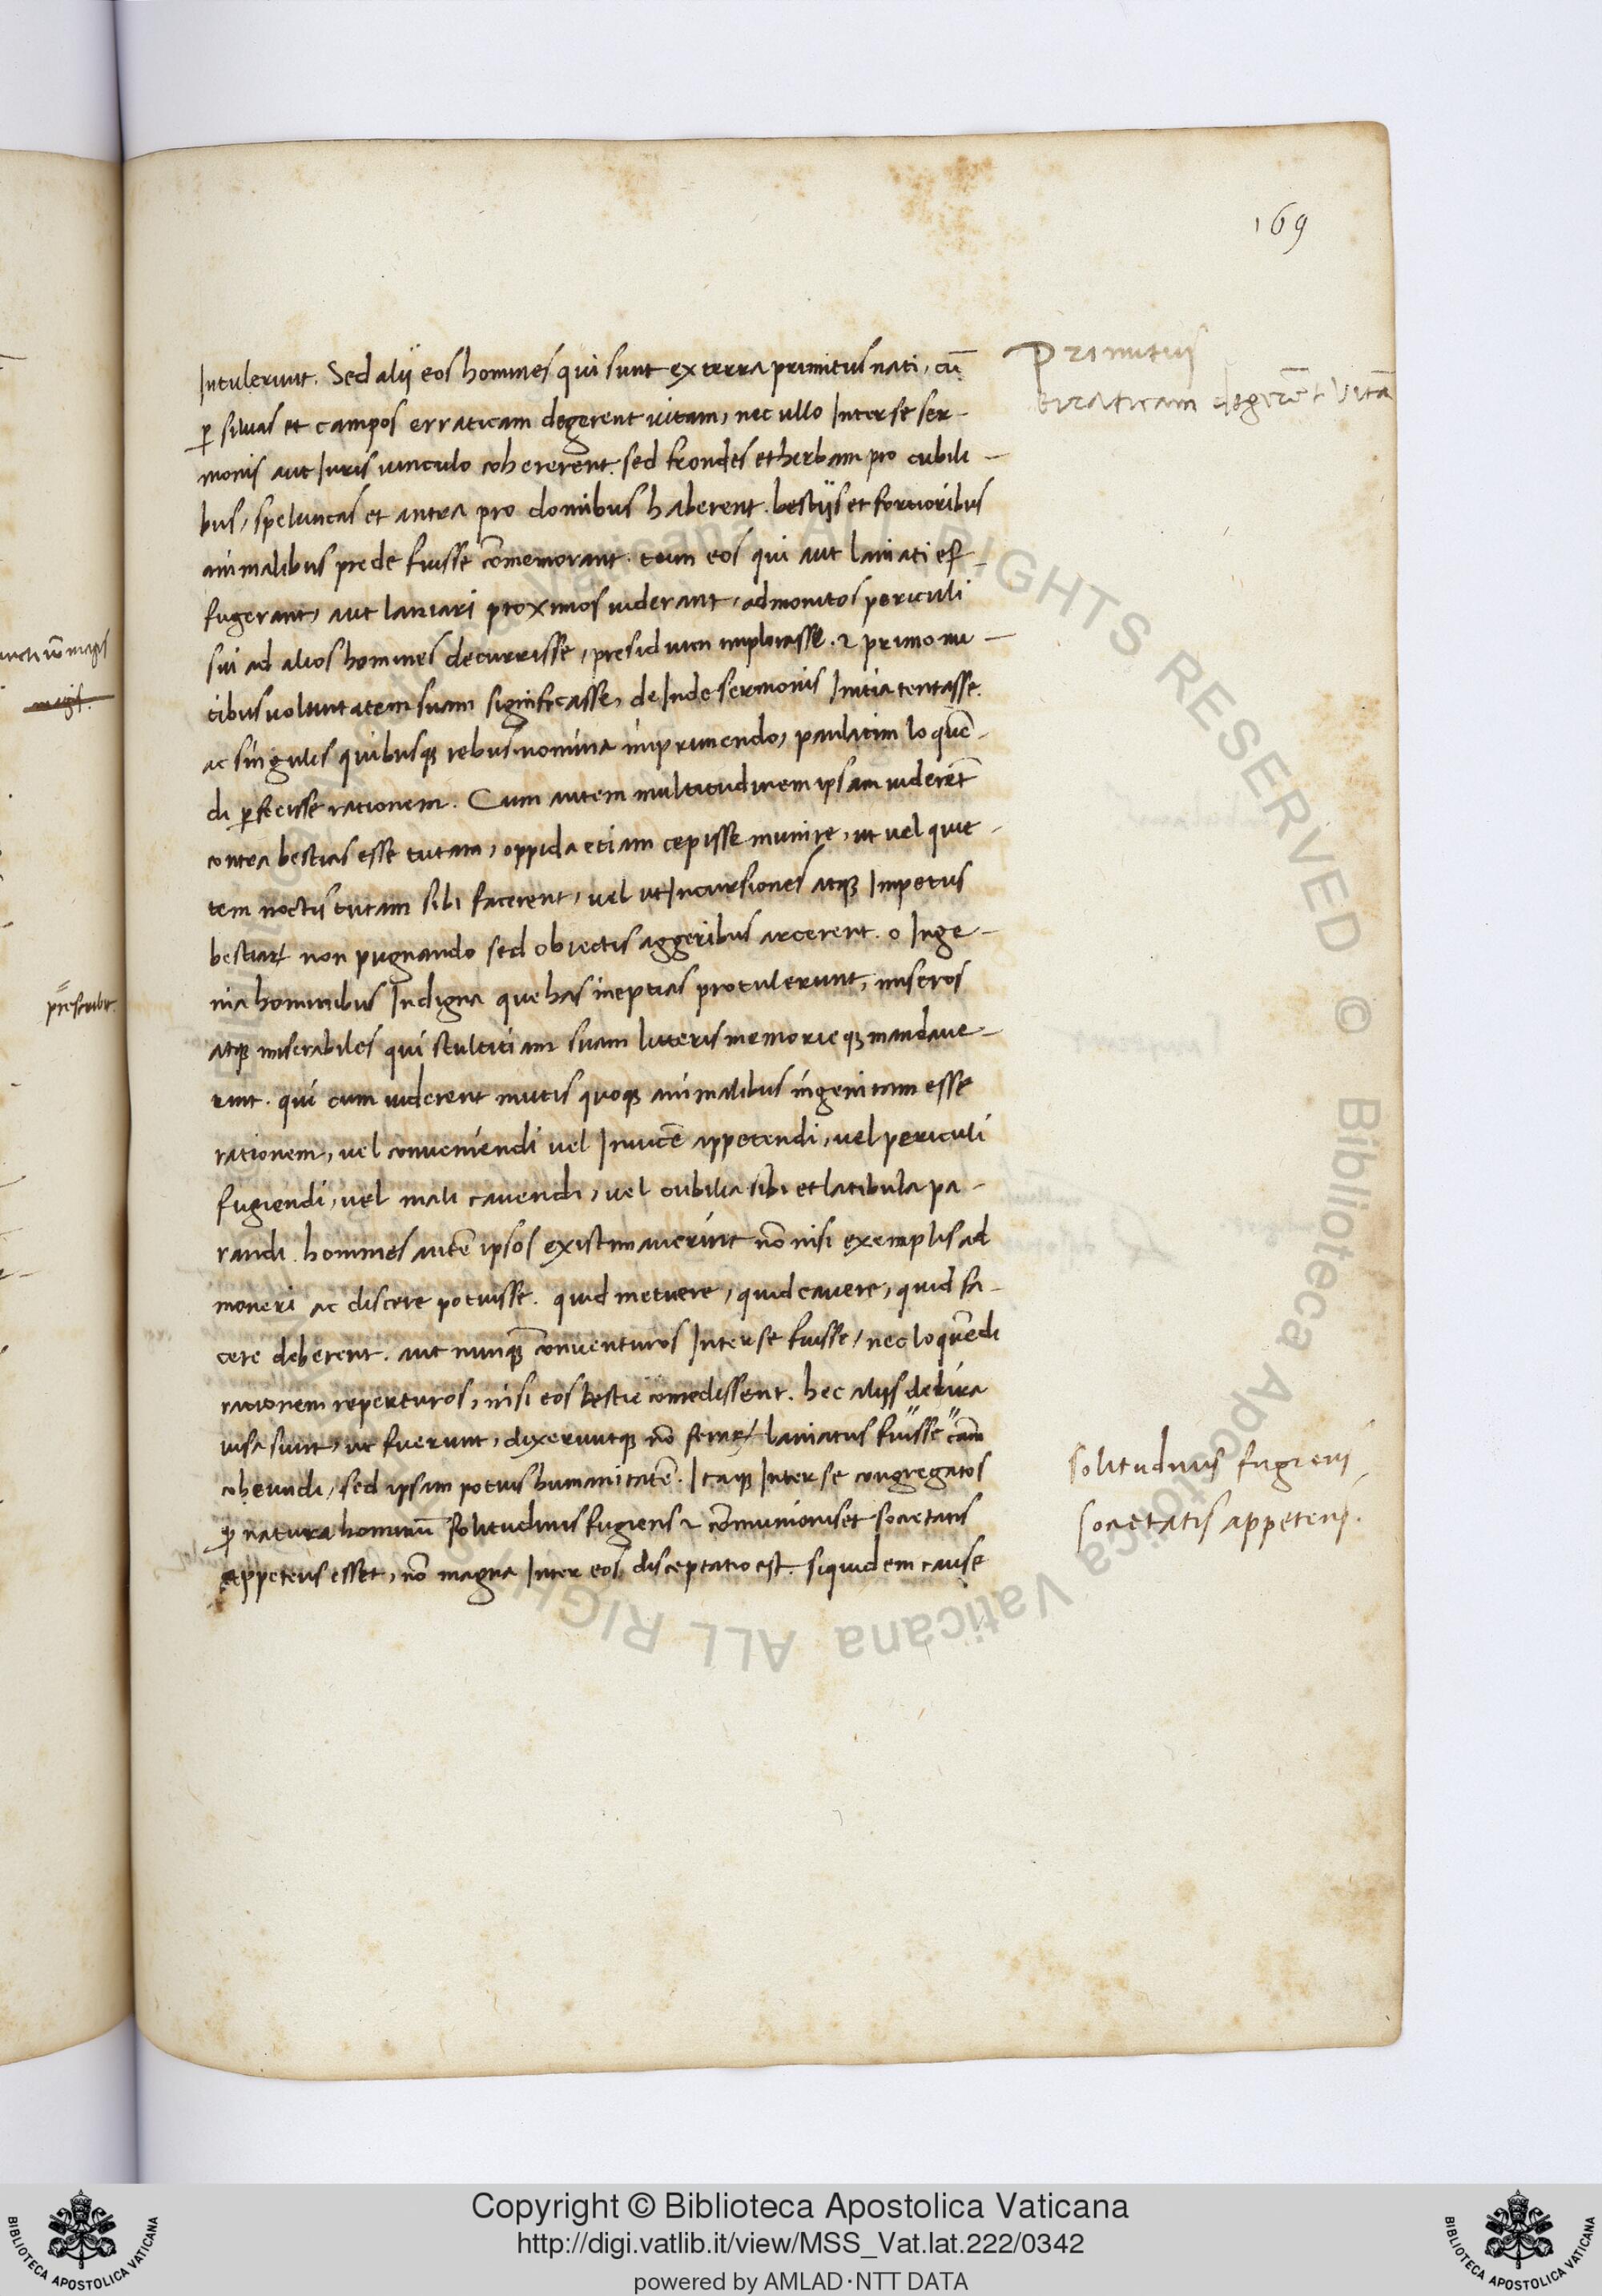 169
Intulerunt. Sed alij eos homines qui sunt ex terra primitus nati, cū
ꝑ siluas et campos erraticam degerent uitam, nec ullo Inter se ser-
monis aut Iuris uinculo cohererent. sed frondes et herbam pro cubili-
bus, speluncas et antra pro domibus haberent. bestijs et fortioribus
animalibus prede fuisse cōmemorant. tum eos qui aut laniati ef-
fugerant, aut laniari proximos uiderant, admonitos periculi
sui ad alios homines decurrisse, presidium implorasse. ⁊ primo nu-
tibus uoluntatem suam significasse, deInde sermonis Initia tentasse.
ac singulis quibusqꝫ rebus nomina imprimendo, paulatim loquē-
di ꝑfecisse rationem. Cum autem multitudinem ipsam uiderēt
contra bestias esse tutam, oppida etiam cepisse munire, ut uel quie-
tem noctis tutam sibi facerent, uel ut Incursiones atqꝫ Impetus
bestiaꝝ non pugnando sed obiectis aggeribus arcerent. o Inge-
nia hominibus Indigna que has ineptias protulerunt, miseros
atqꝫ miserabiles qui stultitiam suam litteris memorieqꝫ mandaue-
runt. qui cum uiderent mutis quoqꝫ animalibus ingenitam esse
rationem, uel conueniendi uel Inuicē appetendi, uel periculi
fugiendi, uel mali cauendi, uel cubilia sibi et latibula pa-
randi. homines autē ipsos existimauerunt nō nisi exemplis ad
moneri ac discere potuisse. quid metuere, quid cauere, quid fa-
cere deberent. aut nunqꝫ conuenturos Inter se fuisse, nec loquēdi
rationem reperturos, nisi eos bestie comedissent. hec alijs delira
uisa sunt, ut fuerunt, dixeruntqꝫ nō feraꝝ laniatus fuisse cām
coheundi, sed ipsam potius humanitatē. Itaqꝫ Inter se congregatos
ꝙ natura hominū solitudinis fugiens ⁊ cōmunionis et societatis
appetens esset, nō magna Inter eos disceptatio est. siquidem cause
Primitus
erraticam degerēt Vitā
solitudinis fugiens
societatis appetens.
magis.
Copyright © Biblioteca Apostolica Vaticana
http://digi.vatlib.it/view/MSS_Vat.lat.222/0342
powered by AMLAD·NTT DATA
BIBLIOTECA APOSTOLICA VATICANA
BIBLIOTECA APOSTOLICA VATICANA